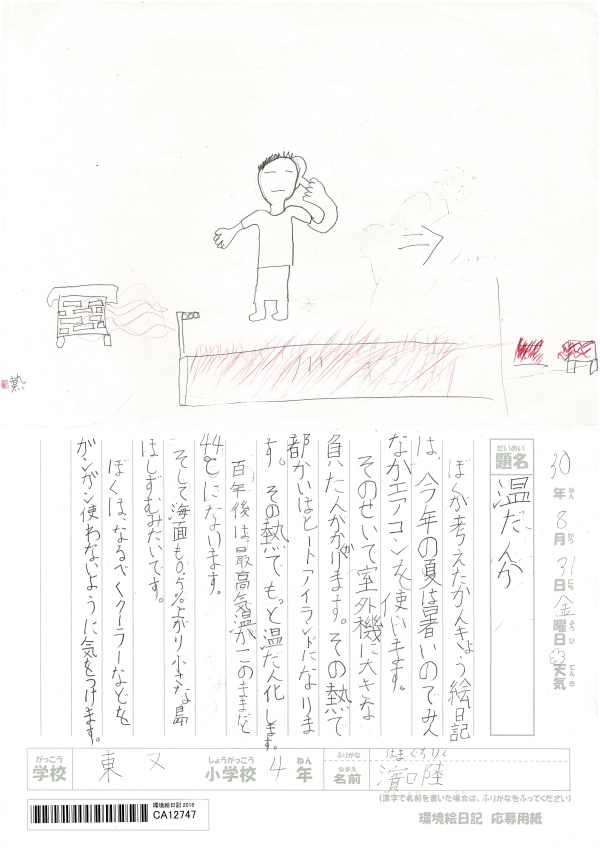 熱
30年8月31日金曜日 天気
ねん がつ にち ようび てんき
だいめい
題名
温だん
ぼくが考えたかんきょう絵日記
は、今年の夏は暑いのでみん
ながエアコンを使います。
そのせいで室外機に大きな
負たんがかかります。その熱で
都かいはヒートアイランドになりま
す。その熱で、もっと温だん化します。
百年後は、最高気温がこのままだと
44℃になります。
そして海面も 上がり小さな島
はしずむみたいです。
ぼくは、なるべくクーラーなどを
ガンガン使わないように気をつけます。
がっこう しょうがっこう ねん ふりがな
学校 東又 小学校 4年
なまえ
名前 濵口陸
(漢字で名前を書いた場合は、ふりがなをふってください)
環境絵日記 2018
CA12747
環境絵日記 応募用紙